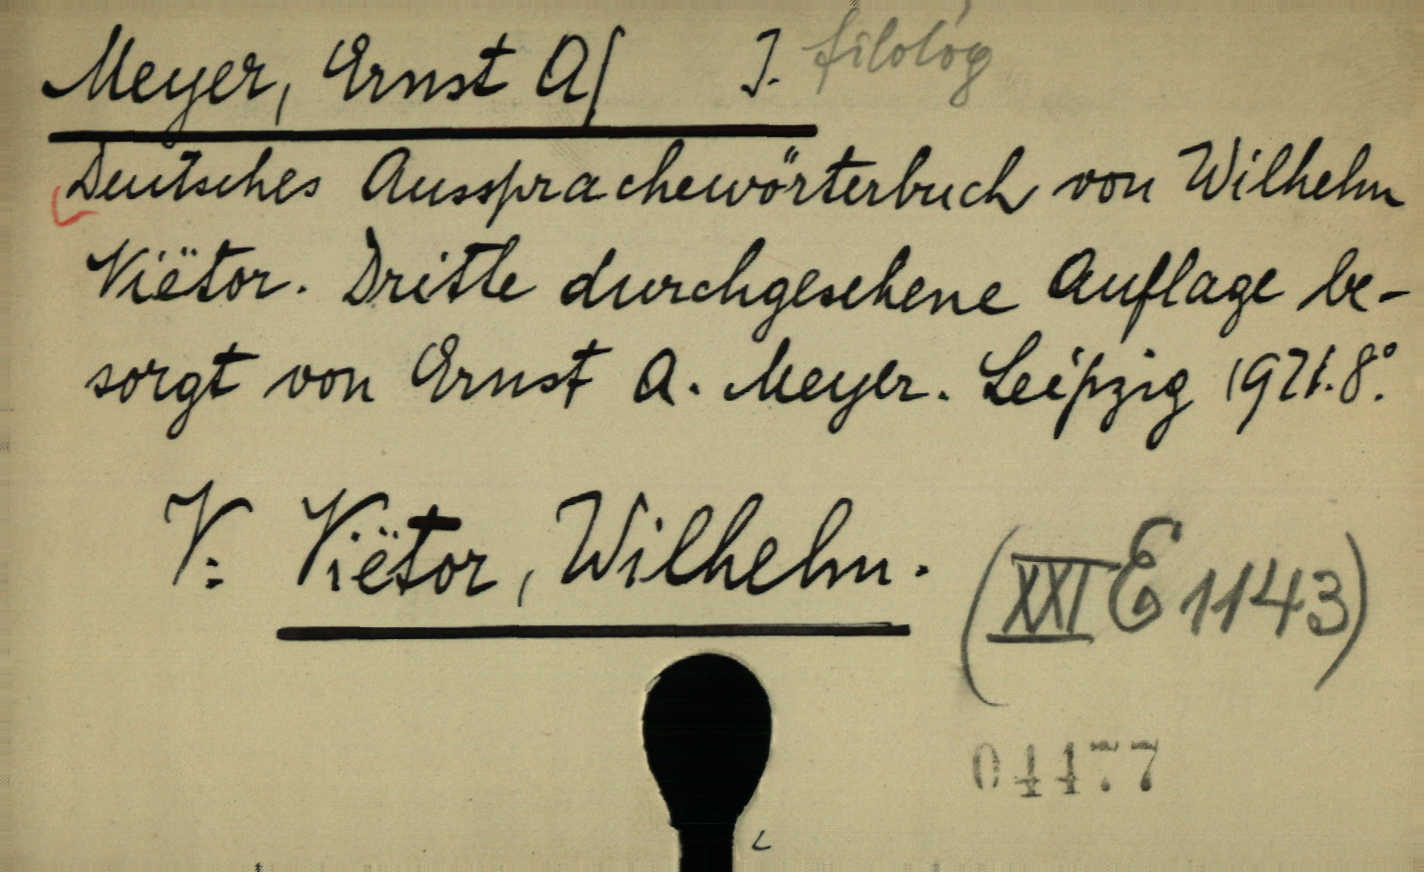 Meyer, Ernst A. I. filológ
Deutsches Aussprachewörterbuch von Wilhelm
Viëtor. Dritte durchgesehene Auflage be-
sorgt von Ernst A. Meyer. Leipzig 1921. 8°.
V: Viëtor, Wilhelm.
(XXI E 1143)
04477